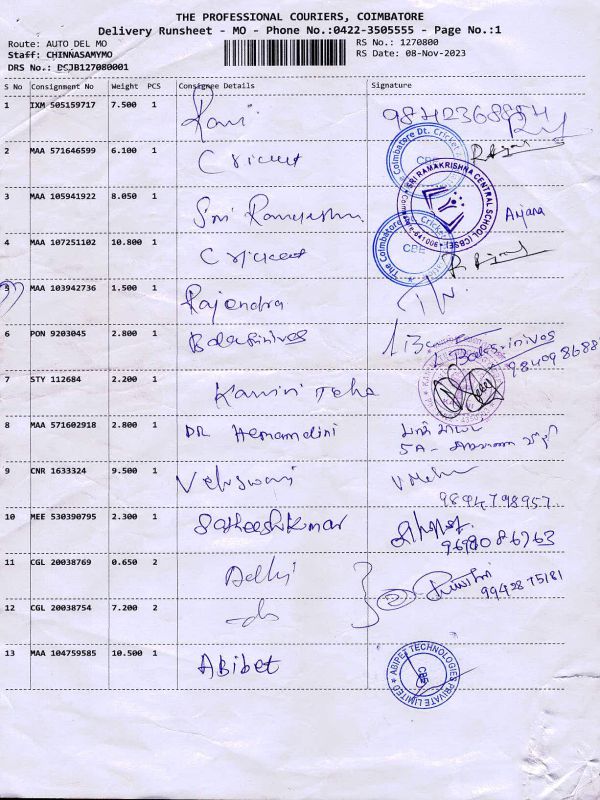 THE PROFESSIONAL COURIERS, COIMBATORE
Delivery Runsheet - MO - Phone No.:0422-3505555 - Page No.:1
Route: AUTO DEL MO RS No.: 1270800
Staff: CHINNASAMYMO RS Date: 08-Nov-2023
DRS No.: DCJB127080001
S No Consignment No Weight PCS Consignee Details Signature
1 IXM 505159717 7.500 1 Ravi
2 MAA 571646599 6.100 1 Cricket
The Coimbatore Dt. Cricket
CBE
3 MAA 105941922 8.050 1 Sri Ramakrishna Anjana
SRI RAMAKRISHNA CENTRAL SCHOOL (CBSE)
4 MAA 107251102 10.800 1 Cricket
The Coimbatore Dt. Cricket
CBE
5 MAA 103942736 1.500 1 Rajendra
6 PON 9203045 2.800 1 Balasrinivos
Balasrinivos
984098688
7 STY 112684 2.200 1
8 MAA 571602918 2.800 1 DR Hemamalini
5A -
9 CNR 1633324 9.500 1
9894798957
10 MEE 530390795 2.300 1 Satheeshkumar
9698086263
11 CGL 20038769 0.650 2 Delhi
9942875181
12 CGL 20038754 7.200 2 -do-
13 MAA 104759585 10.500 1 ABibet
ABIPET TECHNOLOGIES PRIVATE LIMITED
CBE